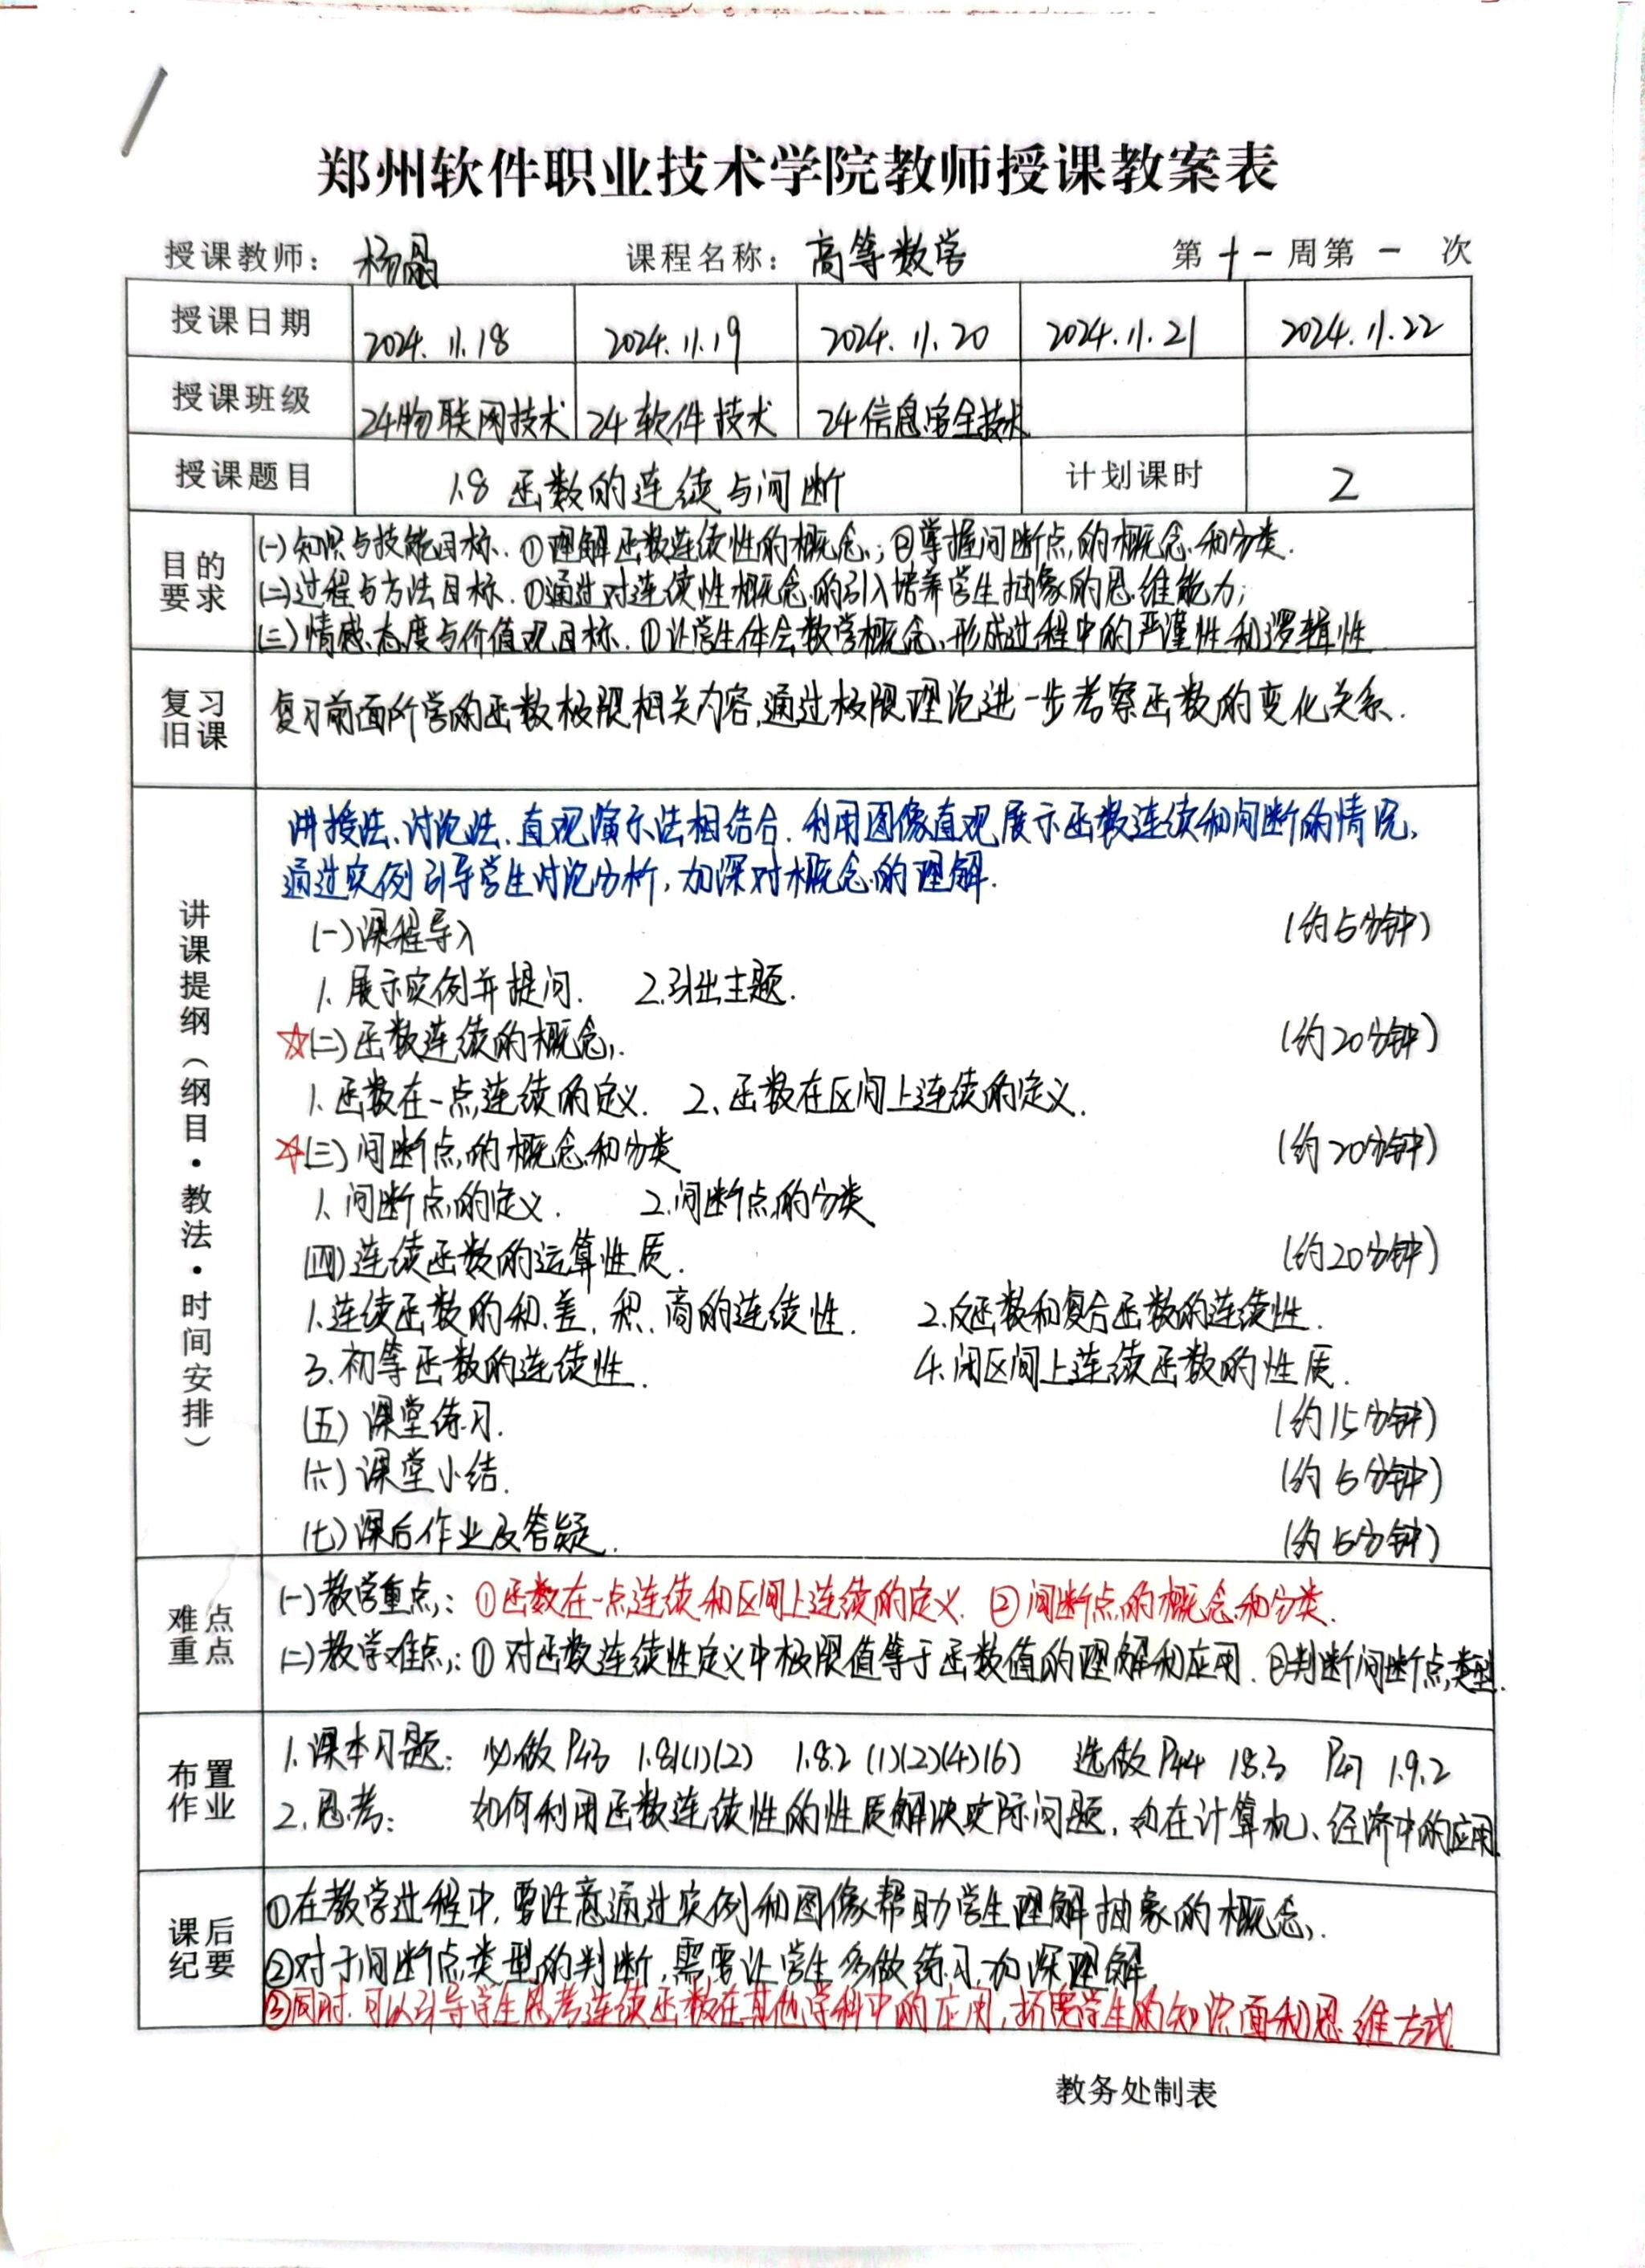 郑州软件职业技术学院教师授课教案表
授课教师： 杨晶 课程名称： 高等数学 第 十一 周第 一 次
授课日期 2024.11.18 2024.11.19 2024.11.20 2024.11.21 2024.11.22
授课班级 24物联网技术 24软件技术 24信息安全技术
授课题目 1.8 函数的连续与间断 计划课时 2
目的要求
(一)知识与技能目标.①理解函数连续性的概念;②掌握间断点的概念和分类.
(二)过程与方法目标.①通过对连续性概念的引入培养学生抽象的思维能力;
(三)情感态度与价值观目标.①让学生体会数学概念形成过程中的严谨性和逻辑性
复习旧课
复习前面所学的函数极限相关内容,通过极限理论进一步考察函数的变化关系.
讲课提纲（纲目·教法·时间安排）
讲授法、讨论法、直观演示法相结合.利用图像直观展示函数连续和间断的情况,
通过实例引导学生讨论分析,加深对概念的理解.
(一)课程导入 (约5分钟)
1.展示实例并提问. 2.引出主题.
☆(二)函数连续的概念. (约20分钟)
1.函数在一点连续的定义. 2、函数在区间上连续的定义.
☆(三)间断点的概念和分类 (约20分钟)
1.间断点的定义. 2.间断点的分类
(四)连续函数的运算性质. (约20分钟)
1.连续函数的和.差.积.商的连续性. 2.反函数和复合函数的连续性.
3.初等函数的连续性. 4.闭区间上连续函数的性质.
(五)课堂练习. (约15分钟)
(六)课堂小结. (约5分钟)
(七)课后作业及答疑. (约5分钟)
难点重点
(一)教学重点:①函数在一点连续和区间上连续的定义.②间断点的概念和分类.
(二)教学难点:①对函数连续性定义中极限值等于函数值的理解和应用.②判断间断点类型.
布置作业
1.课本习题: 必做P43 1.8.1(1)(2) 1.8.2 (1)(2)(4)(6) 选做P44 1.8.3 P47 1.9.2
2.思考: 如何利用函数连续性的性质解决实际问题,如在计算机、经济中的应用.
课后纪要
①在教学过程中,要注意通过实例和图像帮助学生理解抽象的概念.
②对于间断点类型的判断,需要让学生多做练习,加深理解.
③同时.可以引导学生思考连续函数在其他学科中的应用,拓宽学生的知识面和思维方式.
教务处制表